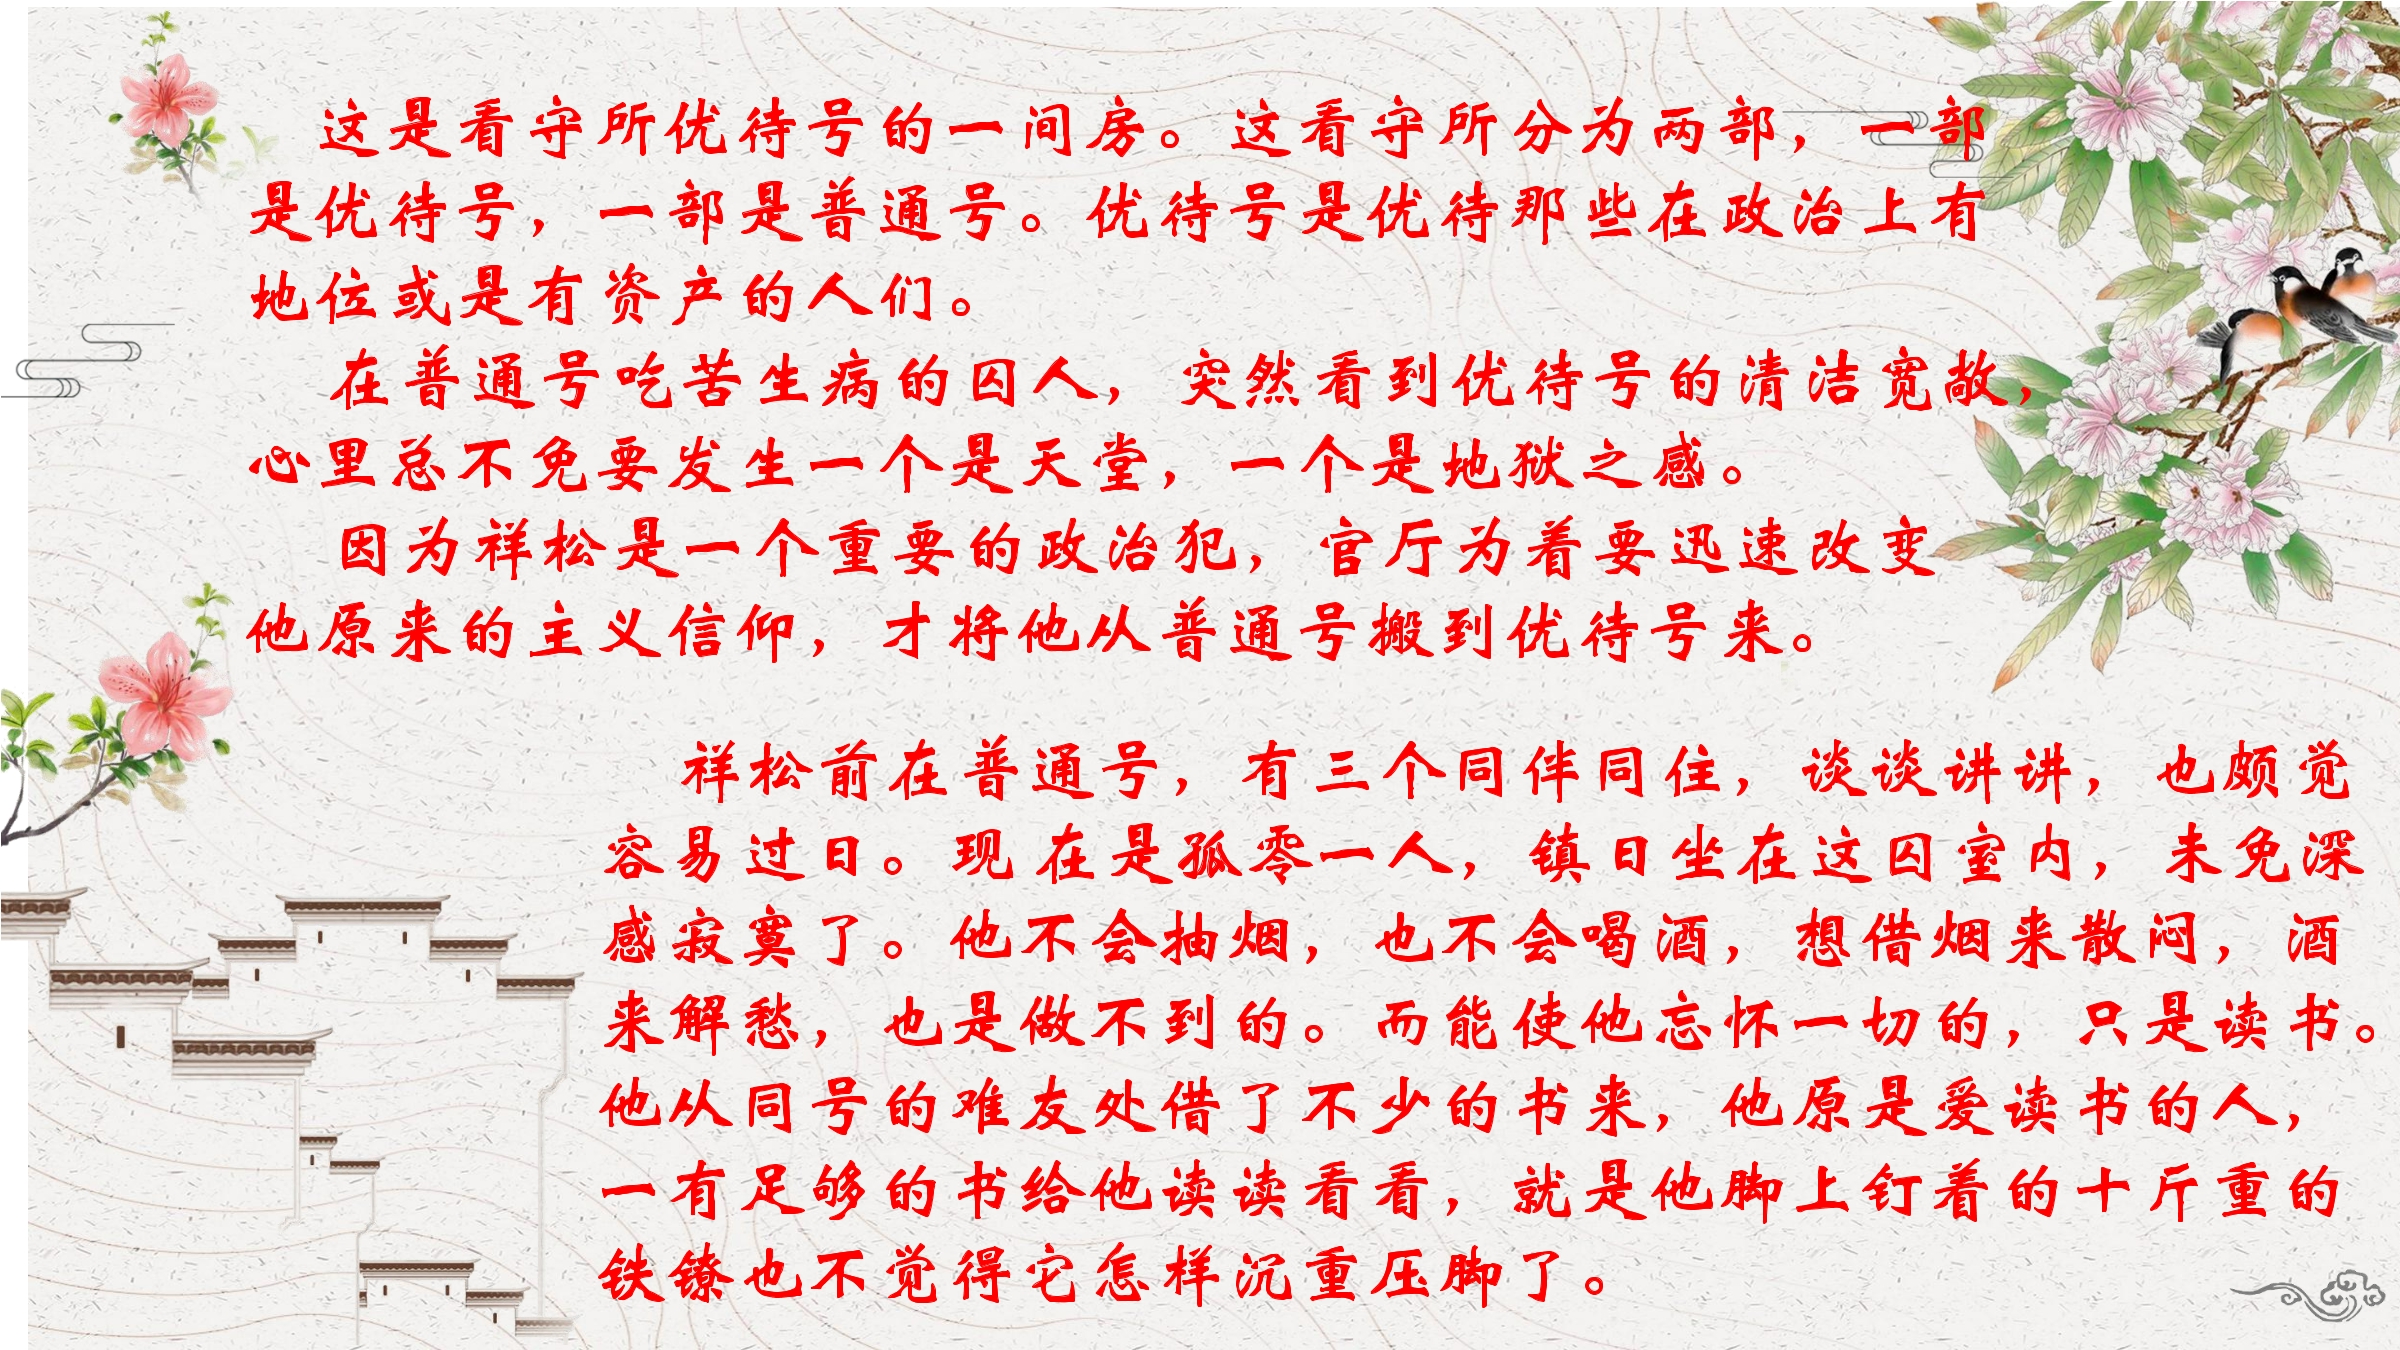 这是看守所优待号的一间房。这看守所分为两部，一部
是优待号，一部是普通号。优待号是优待那些在政治上有
地位或是有资产的人们。
在普通号吃苦生病的囚人，突然看到优待号的清洁宽敞，
心里总不免要发生一个是天堂，一个是地狱之感。
因为祥松是一个重要的政治犯，官厅为着要迅速改变
他原来的主义信仰，才将他从普通号搬到优待号来。
祥松前在普通号，有三个同伴同住，谈谈讲讲，也颇觉
容易过日。现在是孤零一人，镇日坐在这囚室内，未免深
感寂寞了。他不会抽烟，也不会喝酒，想借烟来散闷，酒
来解愁，也是做不到的。而能使他忘怀一切的，只是读书。
他从同号的难友处借了不少的书来，他原是爱读书的人，
一有足够的书给他读读看看，就是他脚上钉着的十斤重的
铁镣也不觉得它怎样沉重压脚了。